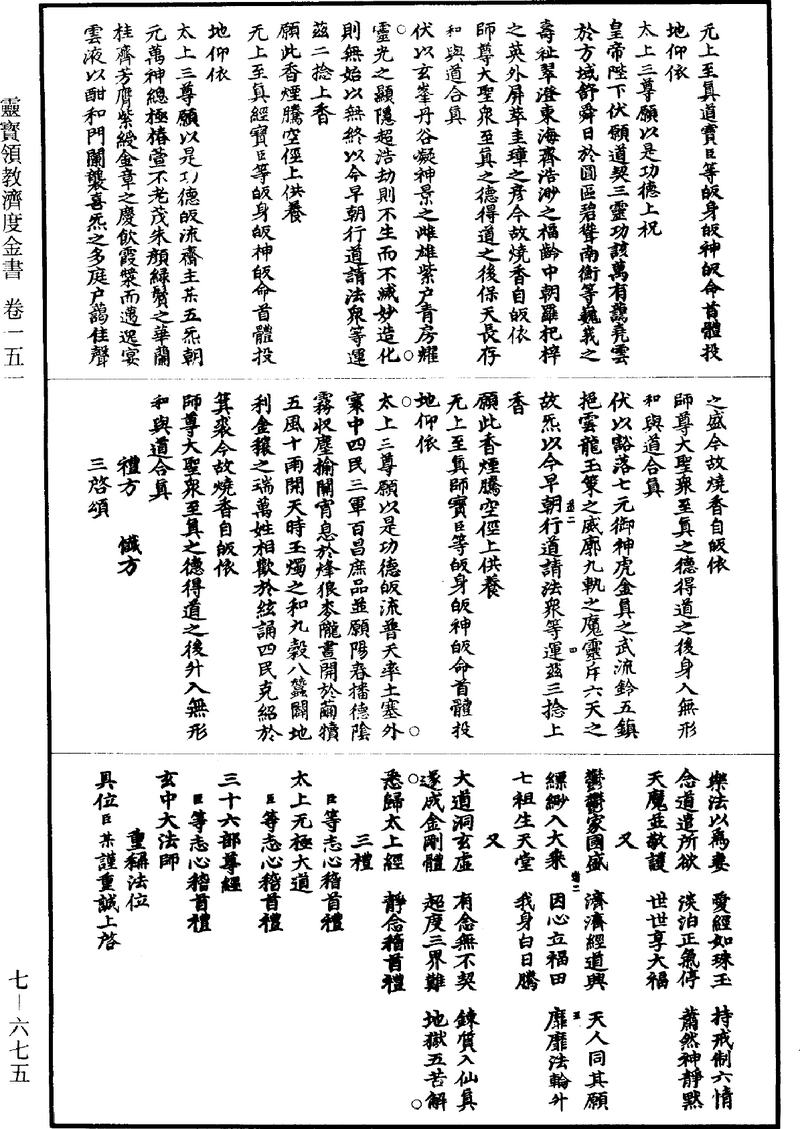 元上至真道寳臣等皈身皈神皈命首體投
地仰依
太上三尊願以是功德上祝
皇帝陛下伏願道契三靈功該萬有藹堯雲
於方域舒舜日於圓區碧聳南衡等巍峩之
壽祉翠澄東海齊浩渺之福齡中朝羅杞梓
之英外屏萃圭璋之彦今故燒香自皈依
師尊大聖衆至真之德得道之後保天長存
和與道合真
伏以玄峯丹谷凝神景之雌雄紫户青房耀
靈光之顯隱超浩劫則不生而不滅妙造化
則無始以無終以今早朝行道請法衆等運
茲二捻上香
願此香煙騰空徑上供養
无上至真經寳臣等皈身皈神皈命首體投
地仰依
太上三尊願以是功德皈流齋主某五炁朝
元萬神總極椿萱不老茂朱顔緑鬢之華蘭
桂齊芳膺紫綬金章之慶飲霞漿而邁逸宴
雲液以酣和門闌襲喜炁之多庭户藹佳聲
之盛今故燒香自皈依
師尊大聖衆至真之德得道之後身入無形
和與道合真
伏以豁落七元御神虎金真之武流鈴五鎮
挹雲龍玉策之威廓九軌之魔靈斥六天之
故炁以今早朝行道請法衆等運茲三捻上
香
願此香煙騰空徑上供養
无上至真師寳臣等皈身皈神皈命首體投
地仰依
太上三尊願以是功德皈流普天率土塞外
寰中四民三軍百昌庶品並願陽春播德陰
霧收塵揄關宵息於烽狼麥隴晝開於繭犢
五風十雨開天時玉燭之和九穀八蠶闢地
利金穰之瑞萬姓相歡於絃誦四民克紹於
箕裘今故燒香自皈依
師尊大聖衆至真之德得道之後升入無形
和與道合真
禮方 懺方
三啓頌
樂法以爲妻 愛經如珠玉 持戒制六情
念道遣所欲 淡泊正氣停 蕭然神靜黙
天魔並敬護 世世享大福
又
鬱鬱家國盛 濟濟經道興 天人同其願
縹緲入大乘 因心立福田 靡靡法輪升
七祖生天堂 我身白日騰
又
大道洞玄虛 有念無不契 錬質入仙真
遂成金剛體 超度三界難 地獄五苦解
悉歸太上經 靜念稽首禮
三禮
臣等志心稽首禮
太上无極大道
臣等志心稽首禮
三十六部尊經
臣等志心稽首禮
玄中大法師
重稱法位
具位臣某謹重誠上啓
靈寳領教濟度金書 卷一五一
七—六七五